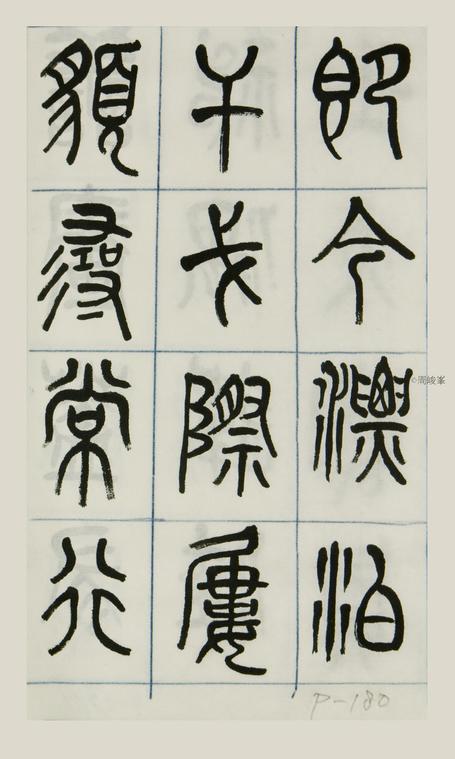 即今漂泊
干戈際屢
䫉尋常行
P-180
©周峻峯